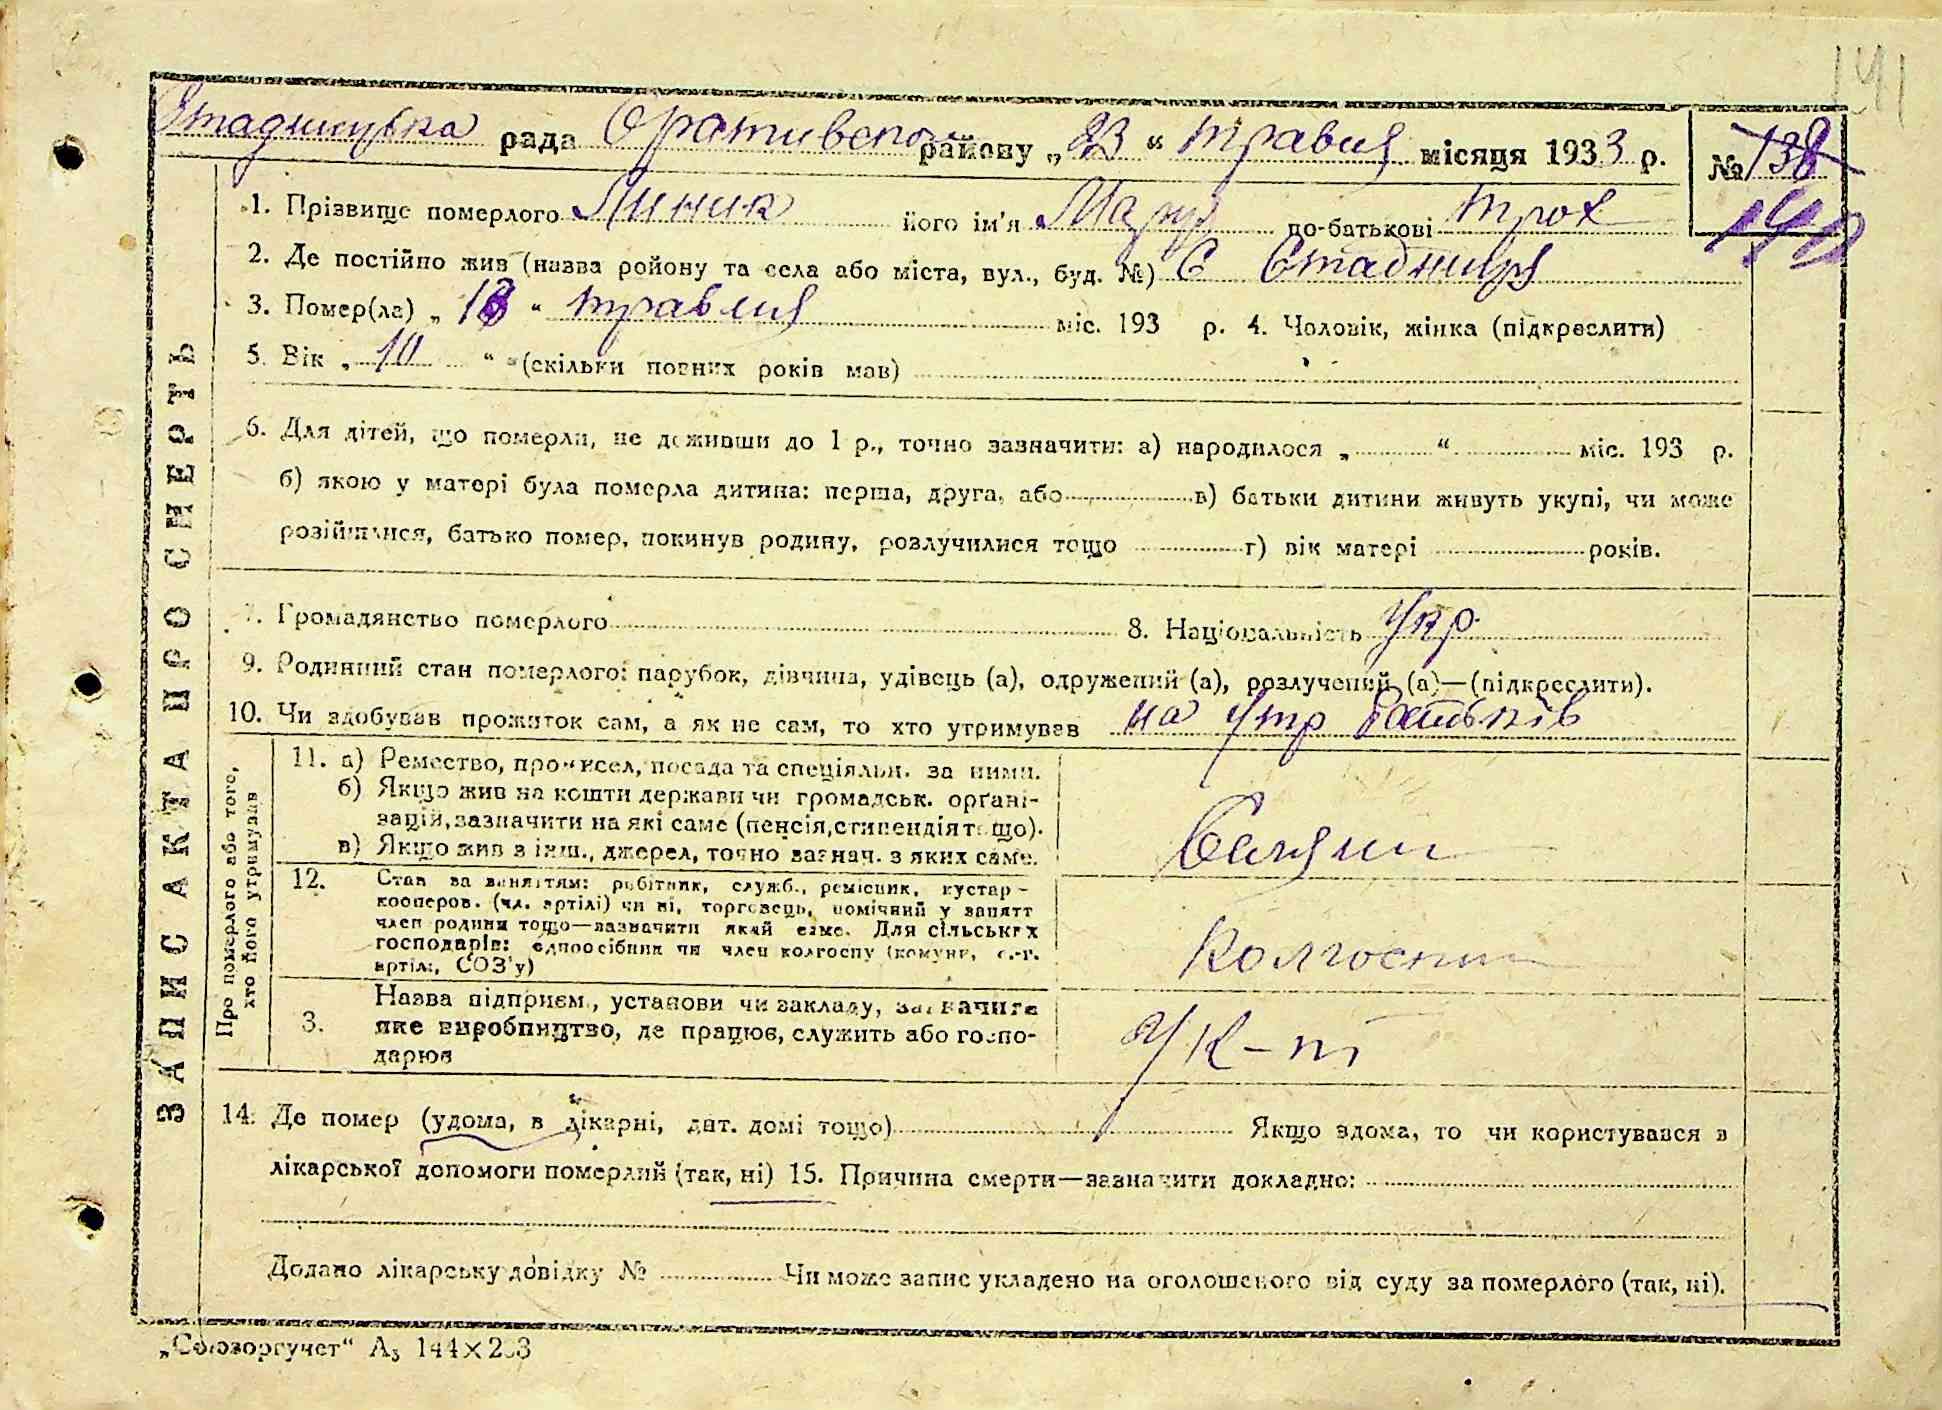 141
рада районову „23“ травня місяця 1933 р. № 138
1. Прізвище померлого Линик його ім'я Мазур по-батькові Трох
2. Де постійно жив (назва ройону та села або міста, вул., буд. №) С
3. Помер(ла) „ “ травня міс. 193 р. 4. Чоловік, жінка (підкреслити)
5. Вік „ 10 “ (скільки повних років мав)
6. Для дітей, що померли, не доживши до 1 р., точно зазначити: а) народилося „ “ міс. 193 р.
б) якою у матері була померла дитина: перша, друга, або в) батьки дитини живуть укупі, чи може
розійшлися, батько помер, покинув родину, розлучилися тощо г) вік матері років.
7. Громадянство померлого 8. Національність Укр.
9. Родинний стан померлого: парубок, дівчина, удівець (а), одружений (а), розлучений (а)—(підкреслити).
10. Чи здобував прожиток сам, а як не сам, то хто утримував на утр батьків
Про померлого або того,
хто його утримував
11. а) Ремество, промисел, посада та спеціяльн. за ними.
б) Якщо жив на кошти держави чи громадськ. органі-
зацій, зазначити на які саме (пенсія, стипендія тощо).
в) Якщо жив з інш., джерел, точно зазнач. з яких саме.
12. Стан за заняттям: робітник, служб., ремісник, кустар-
кооперов. (чл. артілі) чи ні, торговець, помічний у занятт
член родини тощо—зазначити який саме. Для сільських
господарів: одноосібник чи член колгоспу (комуни, с.-г.
артілі, СОЗ'у)
Колгоспн
3. Назва підприєм., установи чи закладу, зазначите
яке виробництво, де працює, служить або госпо-
дарює
14. Де помер (удома, в лікарні, дит. домі тощо) Якщо вдома, то чи користувався з
лікарської допомоги померлий (так, ні) 15. Причина смерти—зазначити докладно:
Додано лікарську довідку № Чи може запис укладено на оголошеного від суду за померлого (так, ні).
ЗАПИС АКТА ПРО СМЕРТЬ
„Союзоргучет“ А₅ 144×203